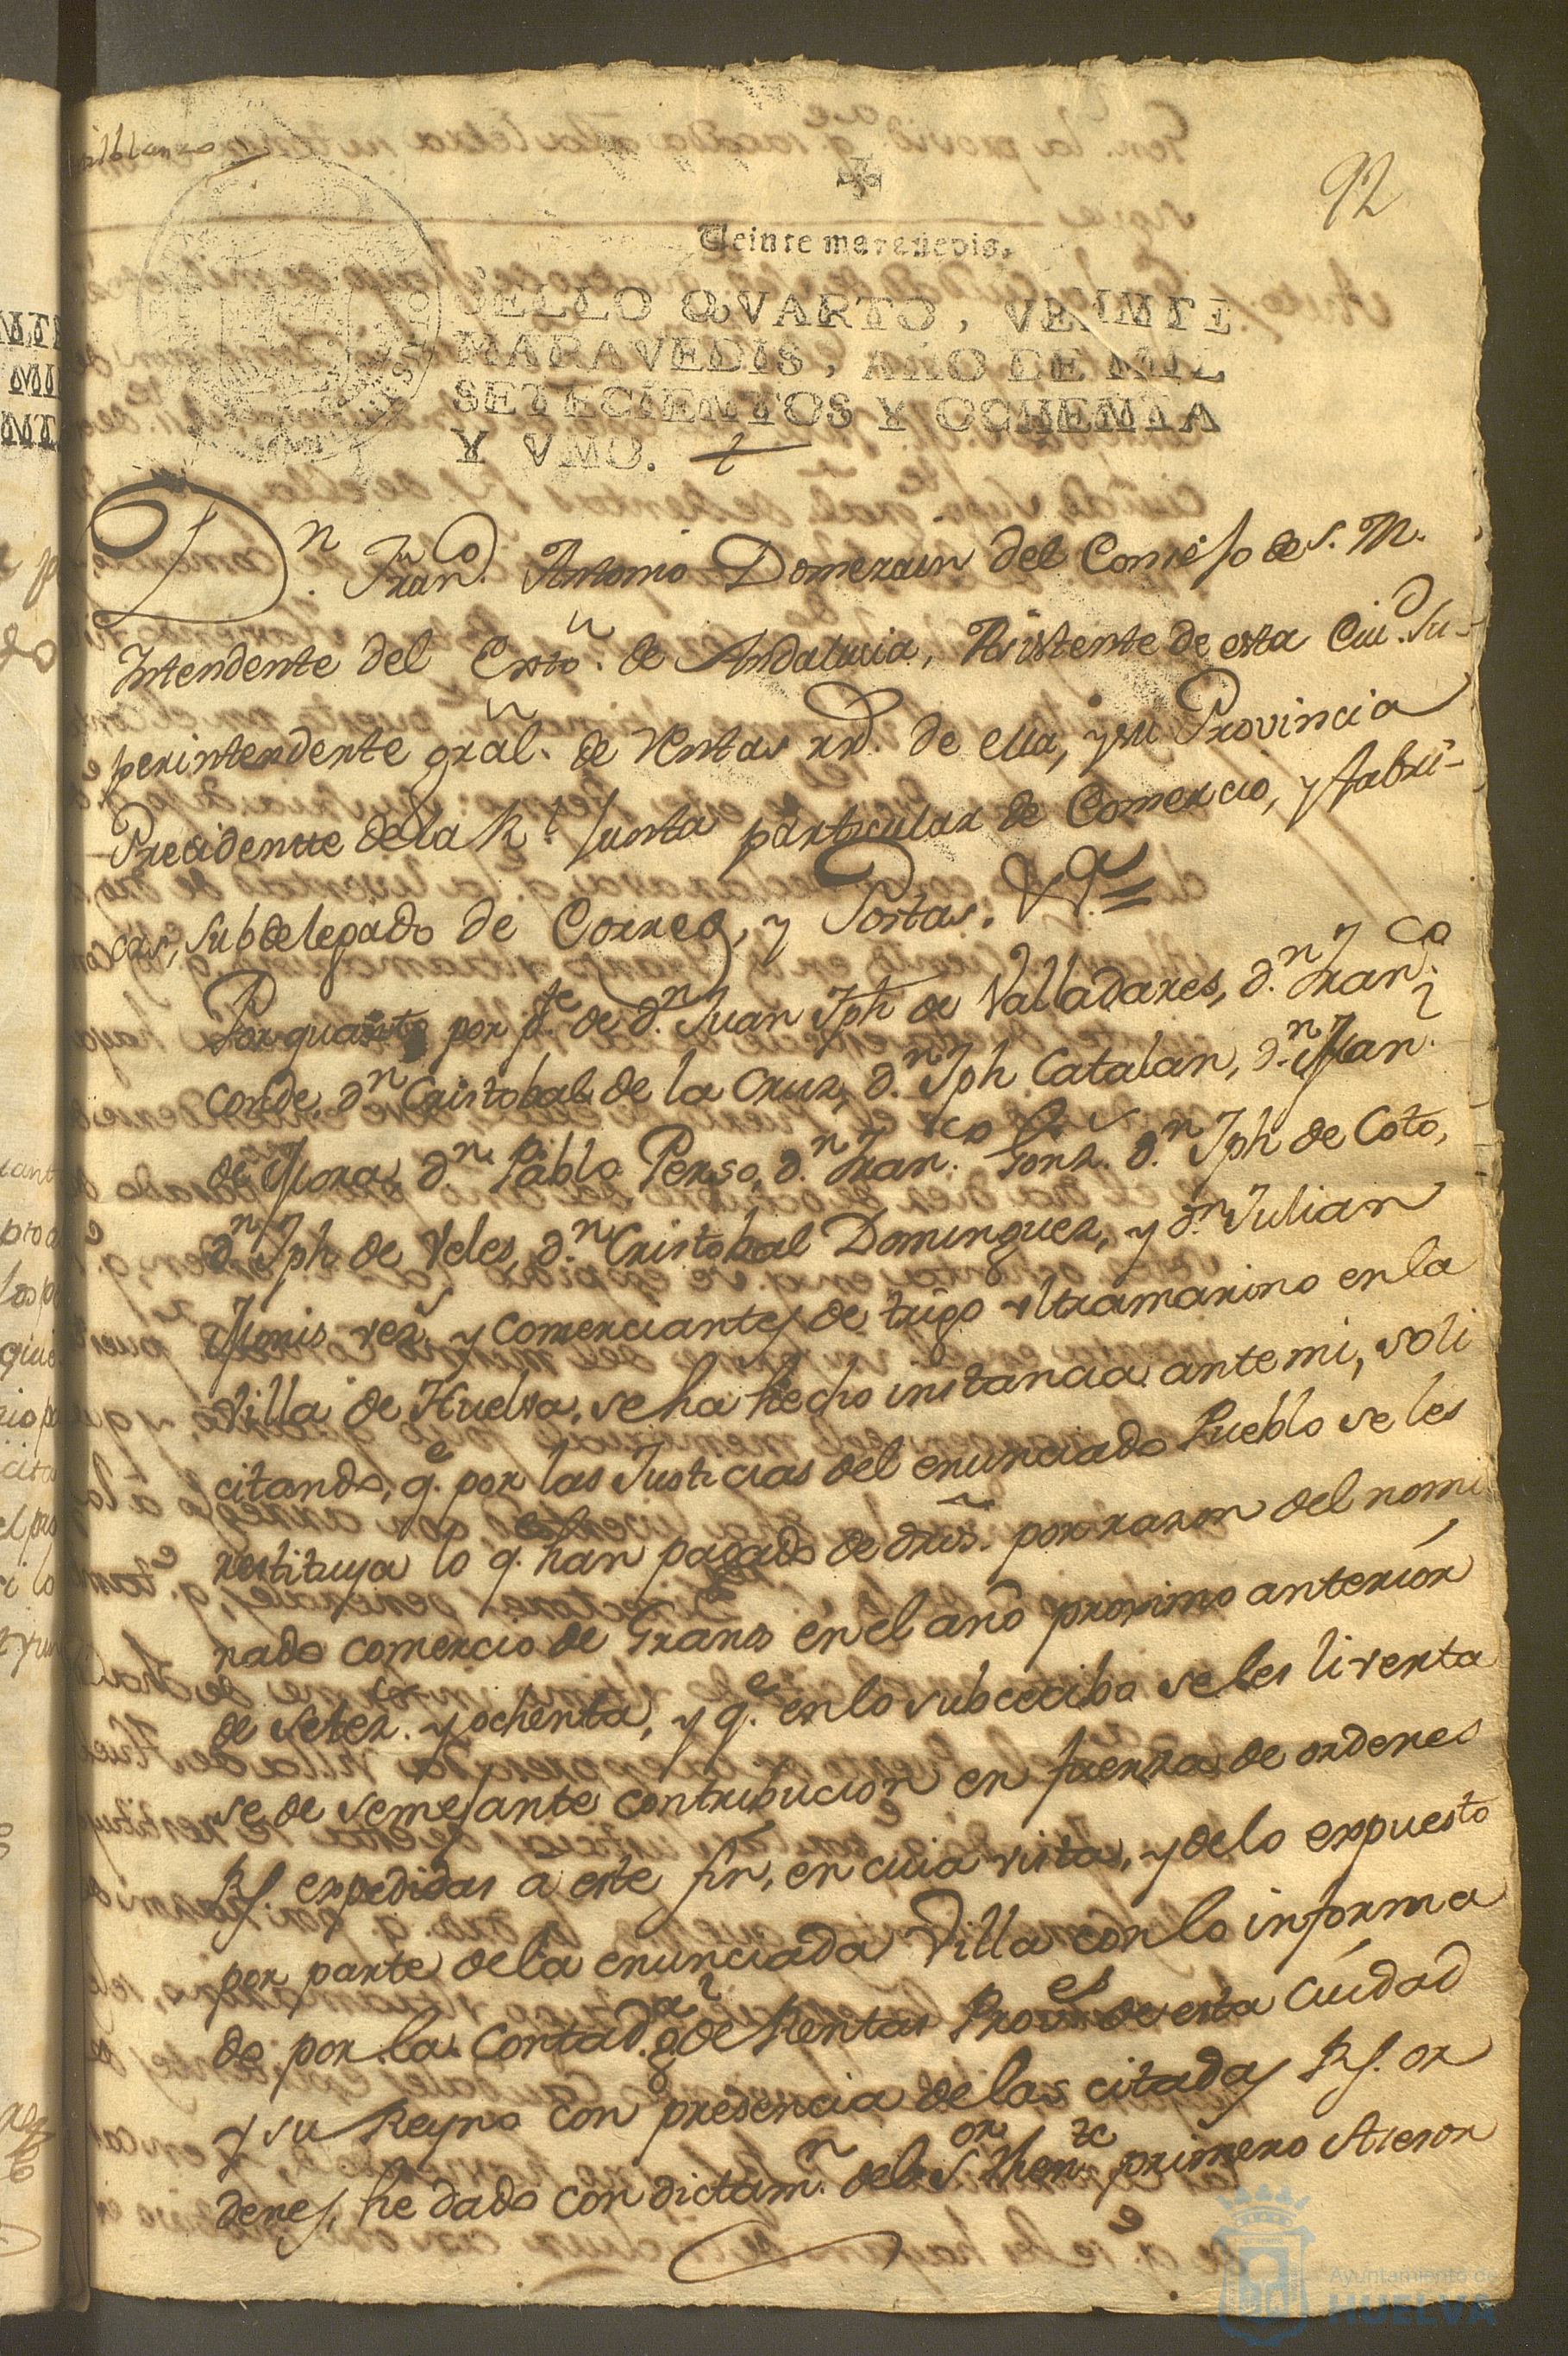 92
Veinte maravedis.
SELLO QVARTO, VEINTE
MARAVEDIS, AÑO DE MIL
SETECIENTOS Y OCHENTA
Y VNO.
Dn. Franco. Antonio Domezain del Consejo de S. M.
Intendente del Exto. de Andalucia, Asistente de esta Ciud. Su-
perintendente gral. de Rentas rs. de ella, y su Provincia
Precidente de la Rl. Junta particular de Comercio, y fabri-
cas, subdelegado de Correos, y Postas. &a.=
Por quanto por pte. de dn. Juan Jph de Valladares, dn. Franco.
Conde, dn. Cristobal de la Cruz, dn. Jph Catalan, dn. Man.
de Mora, dn. Pablo Perso, dn. Franco. Gonz. dn. Jph de Coto,
dn. Jph de Veles, dn. Cristobal Dominguez, y dn. Julian
Monis vezs. y comerciantes de trigo ultramarino en la
Villa de Huelva, se ha hecho instancia ante mi, soli
citando, qe. por las Justicias del enunciado Pueblo se les
restituya lo q. han pagado de dros. por razon del nomi
nado comercio de Granos en el año proximo anterior
de setez. y ochenta, y qe. en lo subcecibo se les livertà
se de semejante contribucion en fuerzas de ordenes
Rs. expedidas a este fin, en cuia vista, y de lo expuesto
por parte de la enunciada Villa con lo informa
do por la Contadª. gl. de Rentas Proves. de esta Ciudad
y su Reyno con presencia de las citadas Rs. or
denes, he dado con dictamn. del Sor. Thente. primero Asesor
Ayuntamiento de
HUELVA